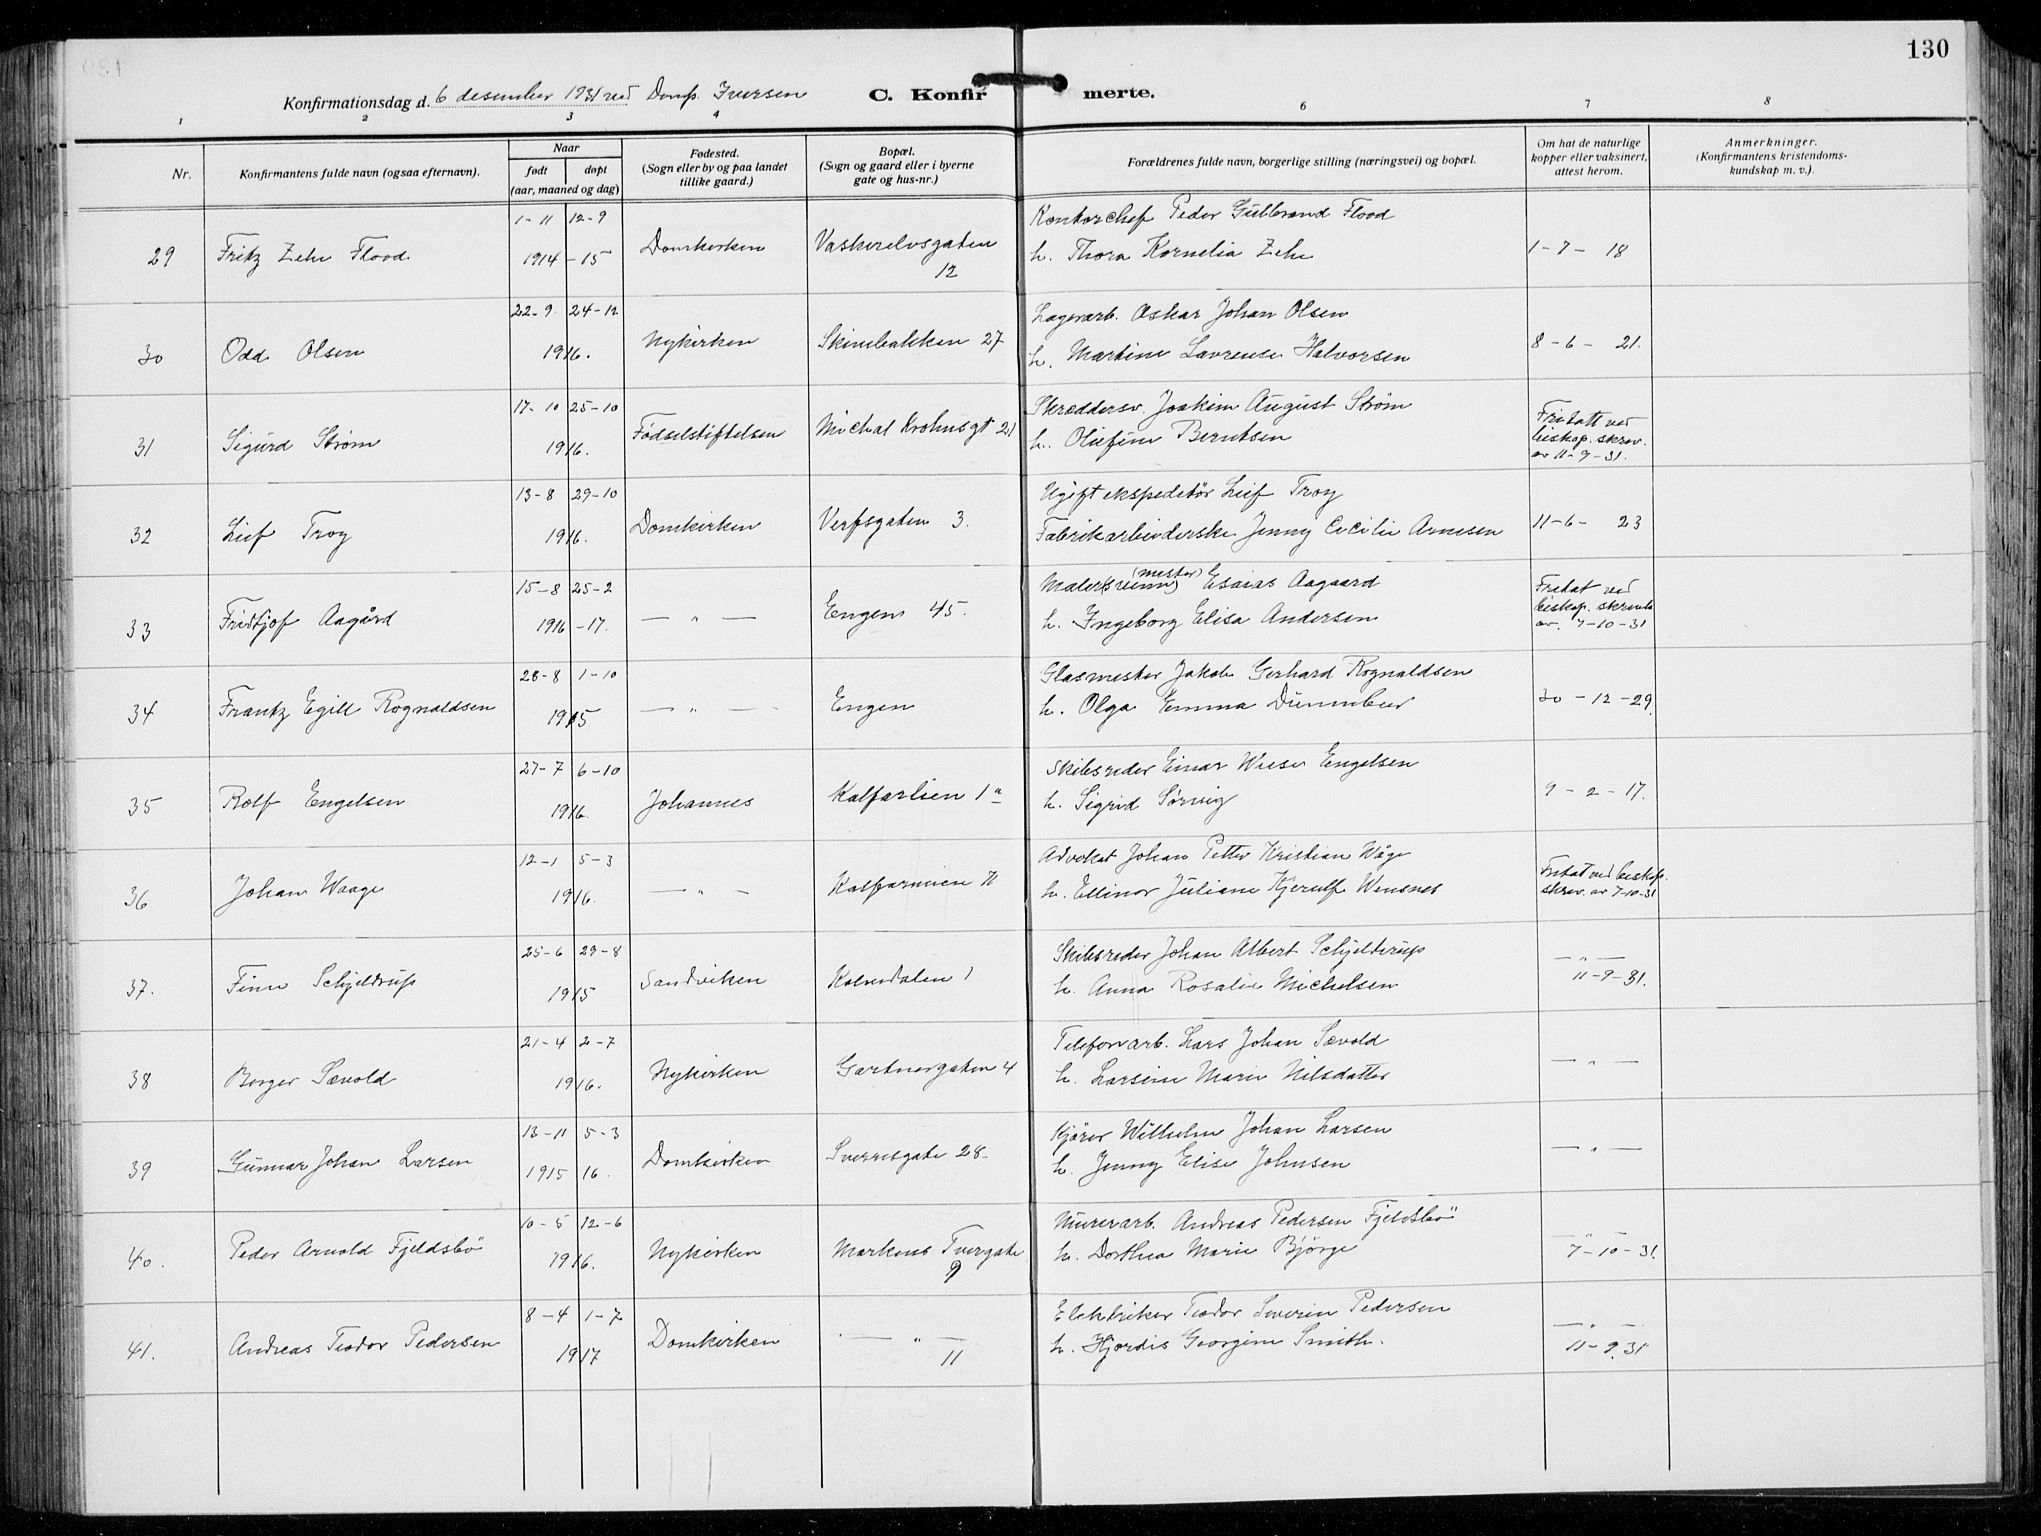 130
Konfirmationsdag d. 6 desember 1931 ved Domp. Iversen C. Konfirmerte.
1 2 3 4 6 7 8
Nr. Konfirmantens fulde navn (ogsaa efternavn). Naar født døpt (aar, maaned og dag) Fødested. (Sogn eller by og paa landet tillike gaard.) Bopæl. (Sogn og gaard eller i byerne gate og hus-nr.) Forældrenes fulde navn, borgerlige stilling (næringsvei) og bopæl. Om hat de naturlige kopper eller vaksinert, attest herom. Anmerkninger. (Konfirmantens kristendomskundskap m. v.).
1-11 12-9 Kontorchef Peder Gulbrand Flood
29 Fritz Zehe Flood 1914-15 Domkirken Vaskerelvsgaten 12 h. Thora Kornelia Zehe 1-7-18
22-9 24-12 Lagerarb. Oskar Johan Olsen
30 Odd Olsen 1916. Nykirken Skivebakken 27 h. Martine Lavrense Halvorsen 8-6-21.
17-10 25-10 Skreddersv. Joakim August Strøm
31 Sigurd Strøm 1916. Fødselstiftelsen Michal Krohnsgt 21 h. Olufine Berntsen Fritatt ved biskop. skrov. av 11-9-31.
13-8 29-10 Ugift ekspeditör Leif Troy
32 Leif Troy 1916. Domkirken Verfsgaten 3. Fabrikarbeiderske Jenny Cecilie Arnesen 11-6-23
15-8 25-2 Maler(svenn) (mester) Esaias Aagaard
33 Fridtjof Aagård 1916-17. — " — Engen 45. h. Ingeborg Elisa Andersen Fritat ved biskop. skriv av. 7-10-31
28-8 1-10 Glasmester Jakob Gerhard Rognaldsen
34 Frantz Egill Rognaldsen 1915 — " — Engen h. Olga Emma 30-12-29.
27-7 6-10 Skibsreder Einar Wiese Engelsen
35 Rolf Engelsen 1916. Johannes Kalfarlien 1a h. Sigrid Sørvig 9-2-17.
12-1 5-3 Advokat Johan Petter Kristian Wåge
36 Johan Waage 1916. — " — Kalfarveien h. Ellinor Juliane Kjerulf Wensnes Fritat ved biskop. skrov. av 7-10-31
25-6 29-8 Skibsreder Johan Albert Schjelderup
37. Finn Schjeldrup 1915 Sandviken Kalvedalen 1 h. Anna Rosalie Michelsen — " — 11-9-31.
21-4 2-7 Telefonarb. Lars Johan Sævold
38 Borger Sævold 1916. Nykirken Gartnergaten 4 h. Larsine Marie Nilsdatter — " —
13-11 5-3 Kjører Wilhelm Johan Larsen
39 Gunnar Johan Larsen 1915 16. Domkirken Sverresgate 28- h. Jenny Elise Johnsen — " —
10-5 12-6 Murerarb. Andreas Pedersen Fjeldsbö
40. Peder Arnold Fjeldsbö 1916. Nykirken Markens Tvergate 9 h. Dorthea Marie Bjørge — " — 7-10-31.
8-4 1-7 Elektriker Teodor Severin Pedersen
41. Andreas Teodor Pedersen 1917 Domkirken — " — 11 h. Hjordis Georgine Smith. — " — 11-9.31